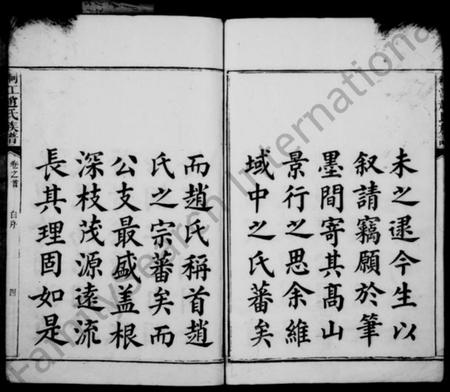 未之逮今生以
叙請竊願於筆
墨間寄其高山
景行之思余維
域中之氏蕃矣
而趙氏稱首趙
氏之宗蕃矣而
公支最盛盖根
深枝茂源遠流
長其理固如是
江趙氏族譜
卷之首
四
FamilySearch International